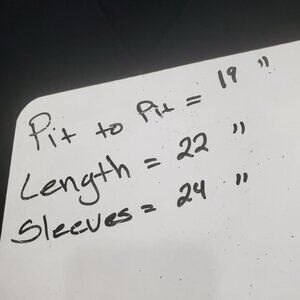 Pit to Pit = 19 "
Length = 22 "
Sleeves = 24 "